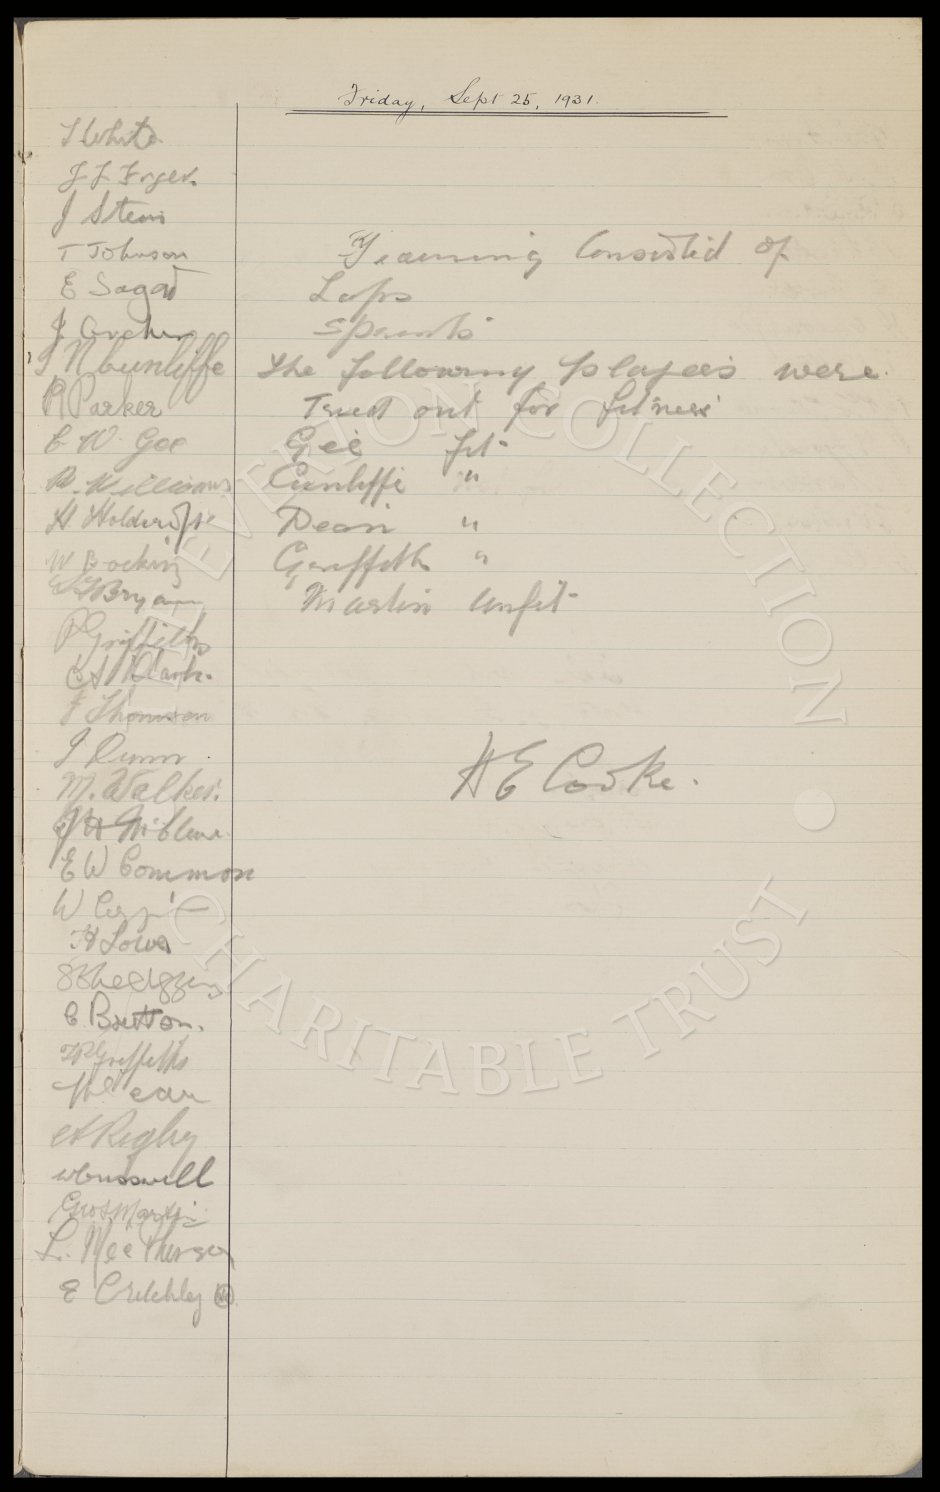 Friday, Sept 25, 1931.
T White
J Stein
T Johnson
E Sagar
J Archer
J N Cunliffe
R Parker
C W Gee
B. Williams
H. Holdcroft
W Bocking
Bryan
P Griffiths
C H Clark.
F Thomson
J Dunn
M. Walker.
E W Common
W
H Lowe
C. Britton.
T P Griffiths
W Dean
A Rigby
W Cresswell
Geo S Martin
L. McPherson
E Critchley
Training Consisted of
Laps
Sprints
The following players were
Tried out for fitness
Gee fit
Cunliffe "
Dean "
Griffith "
Martin Unfit
H E Cooke.
THE EVERTON COLLECTION
CHARITABLE TRUST